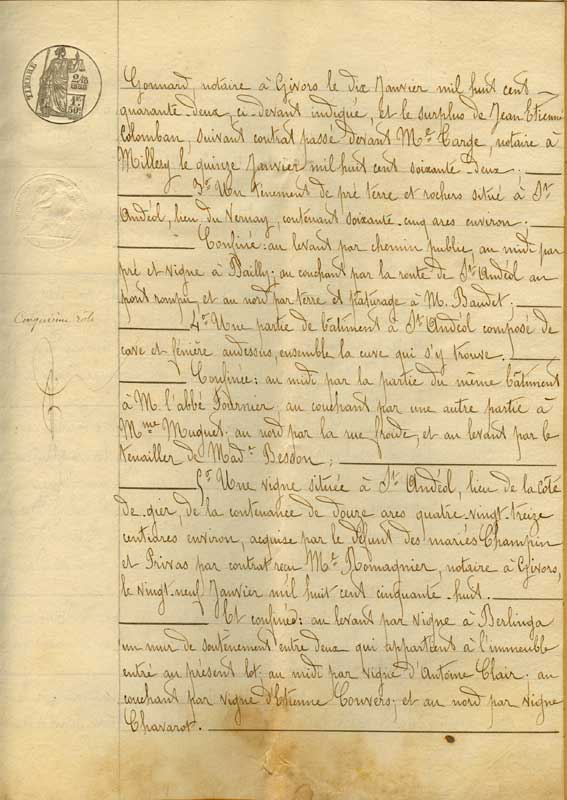 TIMBRE
Gonnard, notaire à Givors le dix Janvier mil huit cent
quarante deux, ci devant indiqué, et le surplus de Jean Etienne
Colomban suivant contrat passé devant Me Targe, notaire à
Millery le quinze Janvier mil huit cent soixante deux;
3o Un tènement de pré terre et rochers situé à St
Andéol, lieu du Vernay, contenant soixante cinq ares environ.
Confiné: au levant par chemin public, au midi par
pré et vigne à Bailly; au couchant par la route de St Andéol au
pont rompu, et au nord par terre et pâturage à M. Baudet;
Cinquième rôle
4o Une partie de bâtiment à St Andéol composé de
cave et fénière audessus, ensemble la cuve qui s'y trouve.
Confinée: au midi par la partie du même bâtiment
à M. l'abbé Fournier, au couchant par une autre partie à
Mme Muguet, au nord par la rue froide, et au levant par le
tenailler de Made Besson;
5o Une vigne située à St Andéol, lieu de la Côte
de gier, de la contenance de douze ares quatre vingt treize
centiares environ, acquise par le défunt des mariés Champin
et Privas par contrat reçu Me Romagnier, notaire à Givors,
le vingt neuf Janvier mil huit cent cinquante huit.
Et confinée: au levant par vigne à Berlinga
un mur de soutènement entre deux qui appartient à l'immeuble
entré au présent lot; au midi par vigne d'Antoine Clair; au
couchant par vigne d'Etienne Couvers; et au nord par vigne
Chavarot.